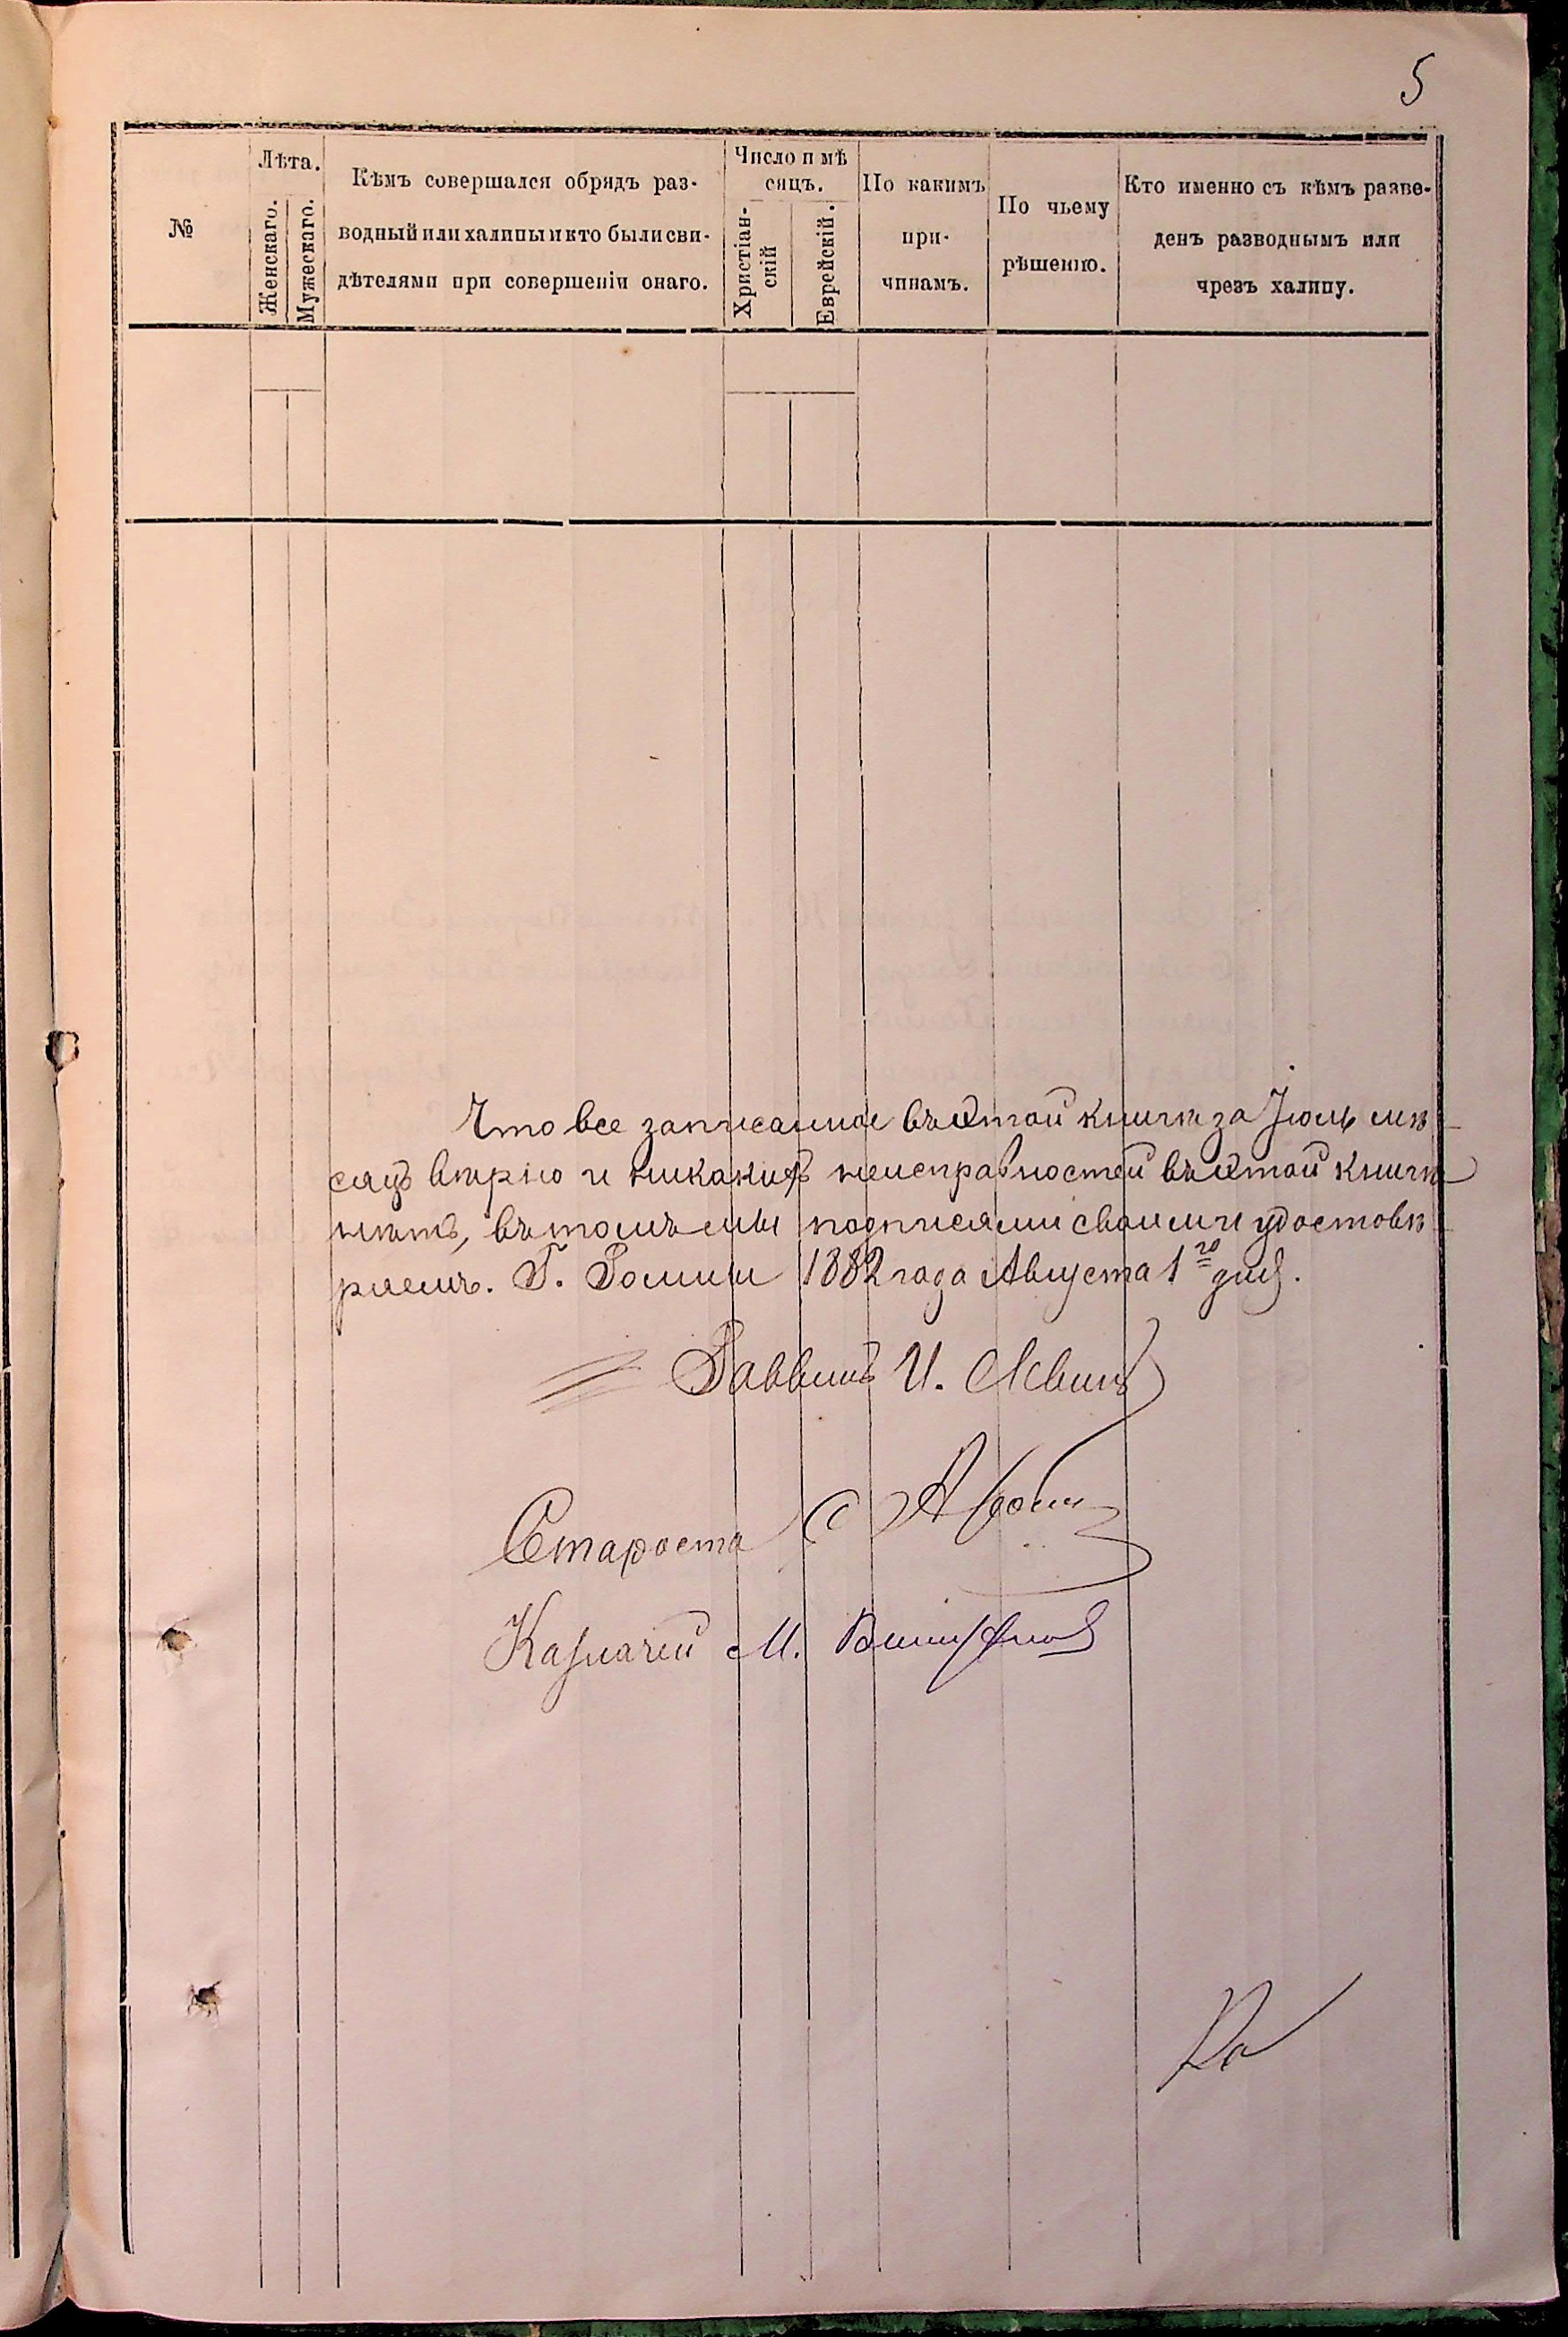 5
№
Лѣта.
Женскаго.
Мужескаго.
Кѣмъ совершался обрядъ раз-
водный или халицы и кто были сви-
дѣтелями при совершеніи онаго.
Число и мѣ
сяцъ.
Христіан-
скій
Еврейскій.
По какимъ
при-
чинамъ.
По чьему
рѣшенію.
Кто именно съ кѣмъ разве-
денъ разводнымъ или
чрезъ халицу.
Что все записанное въ этой книгѣ за Іюль мѣ
сяцъ вѣрно и никакихъ неисправностей въ этой книгѣ
нѣтъ, въ томъ мы подписями своими удостовѣ
ряемъ. Г. Ромны 1882 года Августа 1го дня.
Раввинъ И. Левинъ
Староста С
Казначей М.